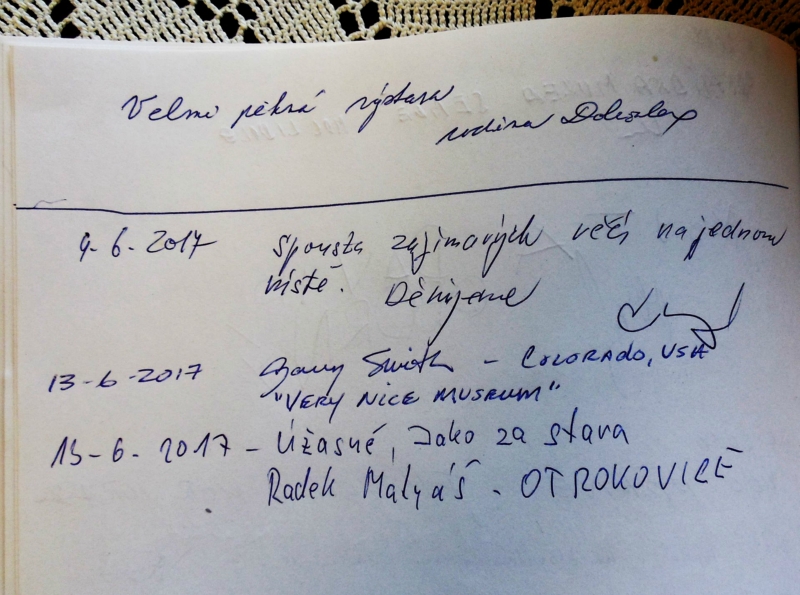 Velmi pěkná výstava
rodina
4-6-2017 Spousta zajímavých věcí na jednom
místě. Děkujeme
13-6-2017 Smith - COLORADO, USA
"VERY NICE MUSEUM"
13-6-2017 - Úžasné, Jako za stara
Radek Matyáš - OTROKOVICE